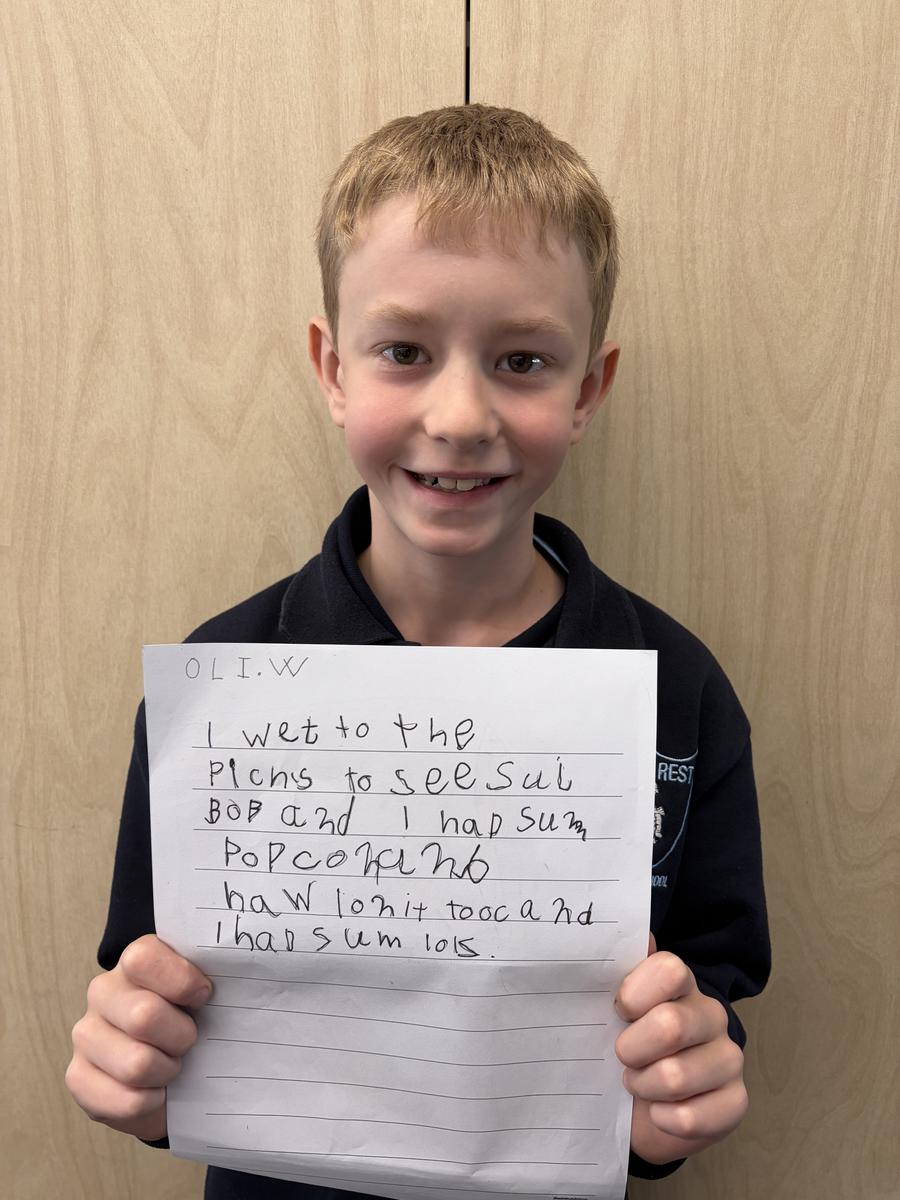 OLI.W
I wet to the
Pichs to see sui
BOB and I hap sum
PoPcohanb
haw lonit tooc and
I hap sum lols.
REST
OOL